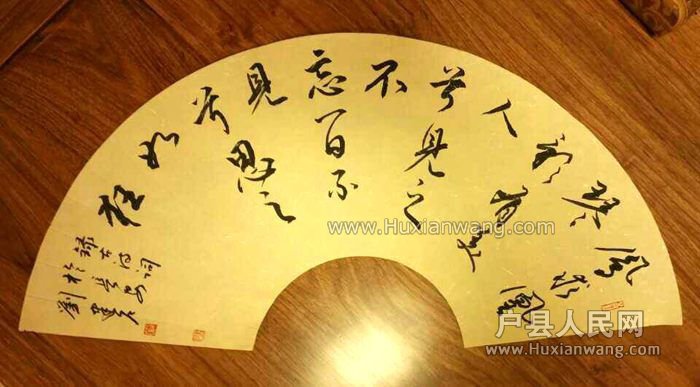 鳳求凰
琴
歌有美
人
兮見之
不
忘一日不
見
兮思之
如
狂
錄古诗词
於长安
劉
www.Huxianwang.com
户县人民网
www.Huxianwang.com